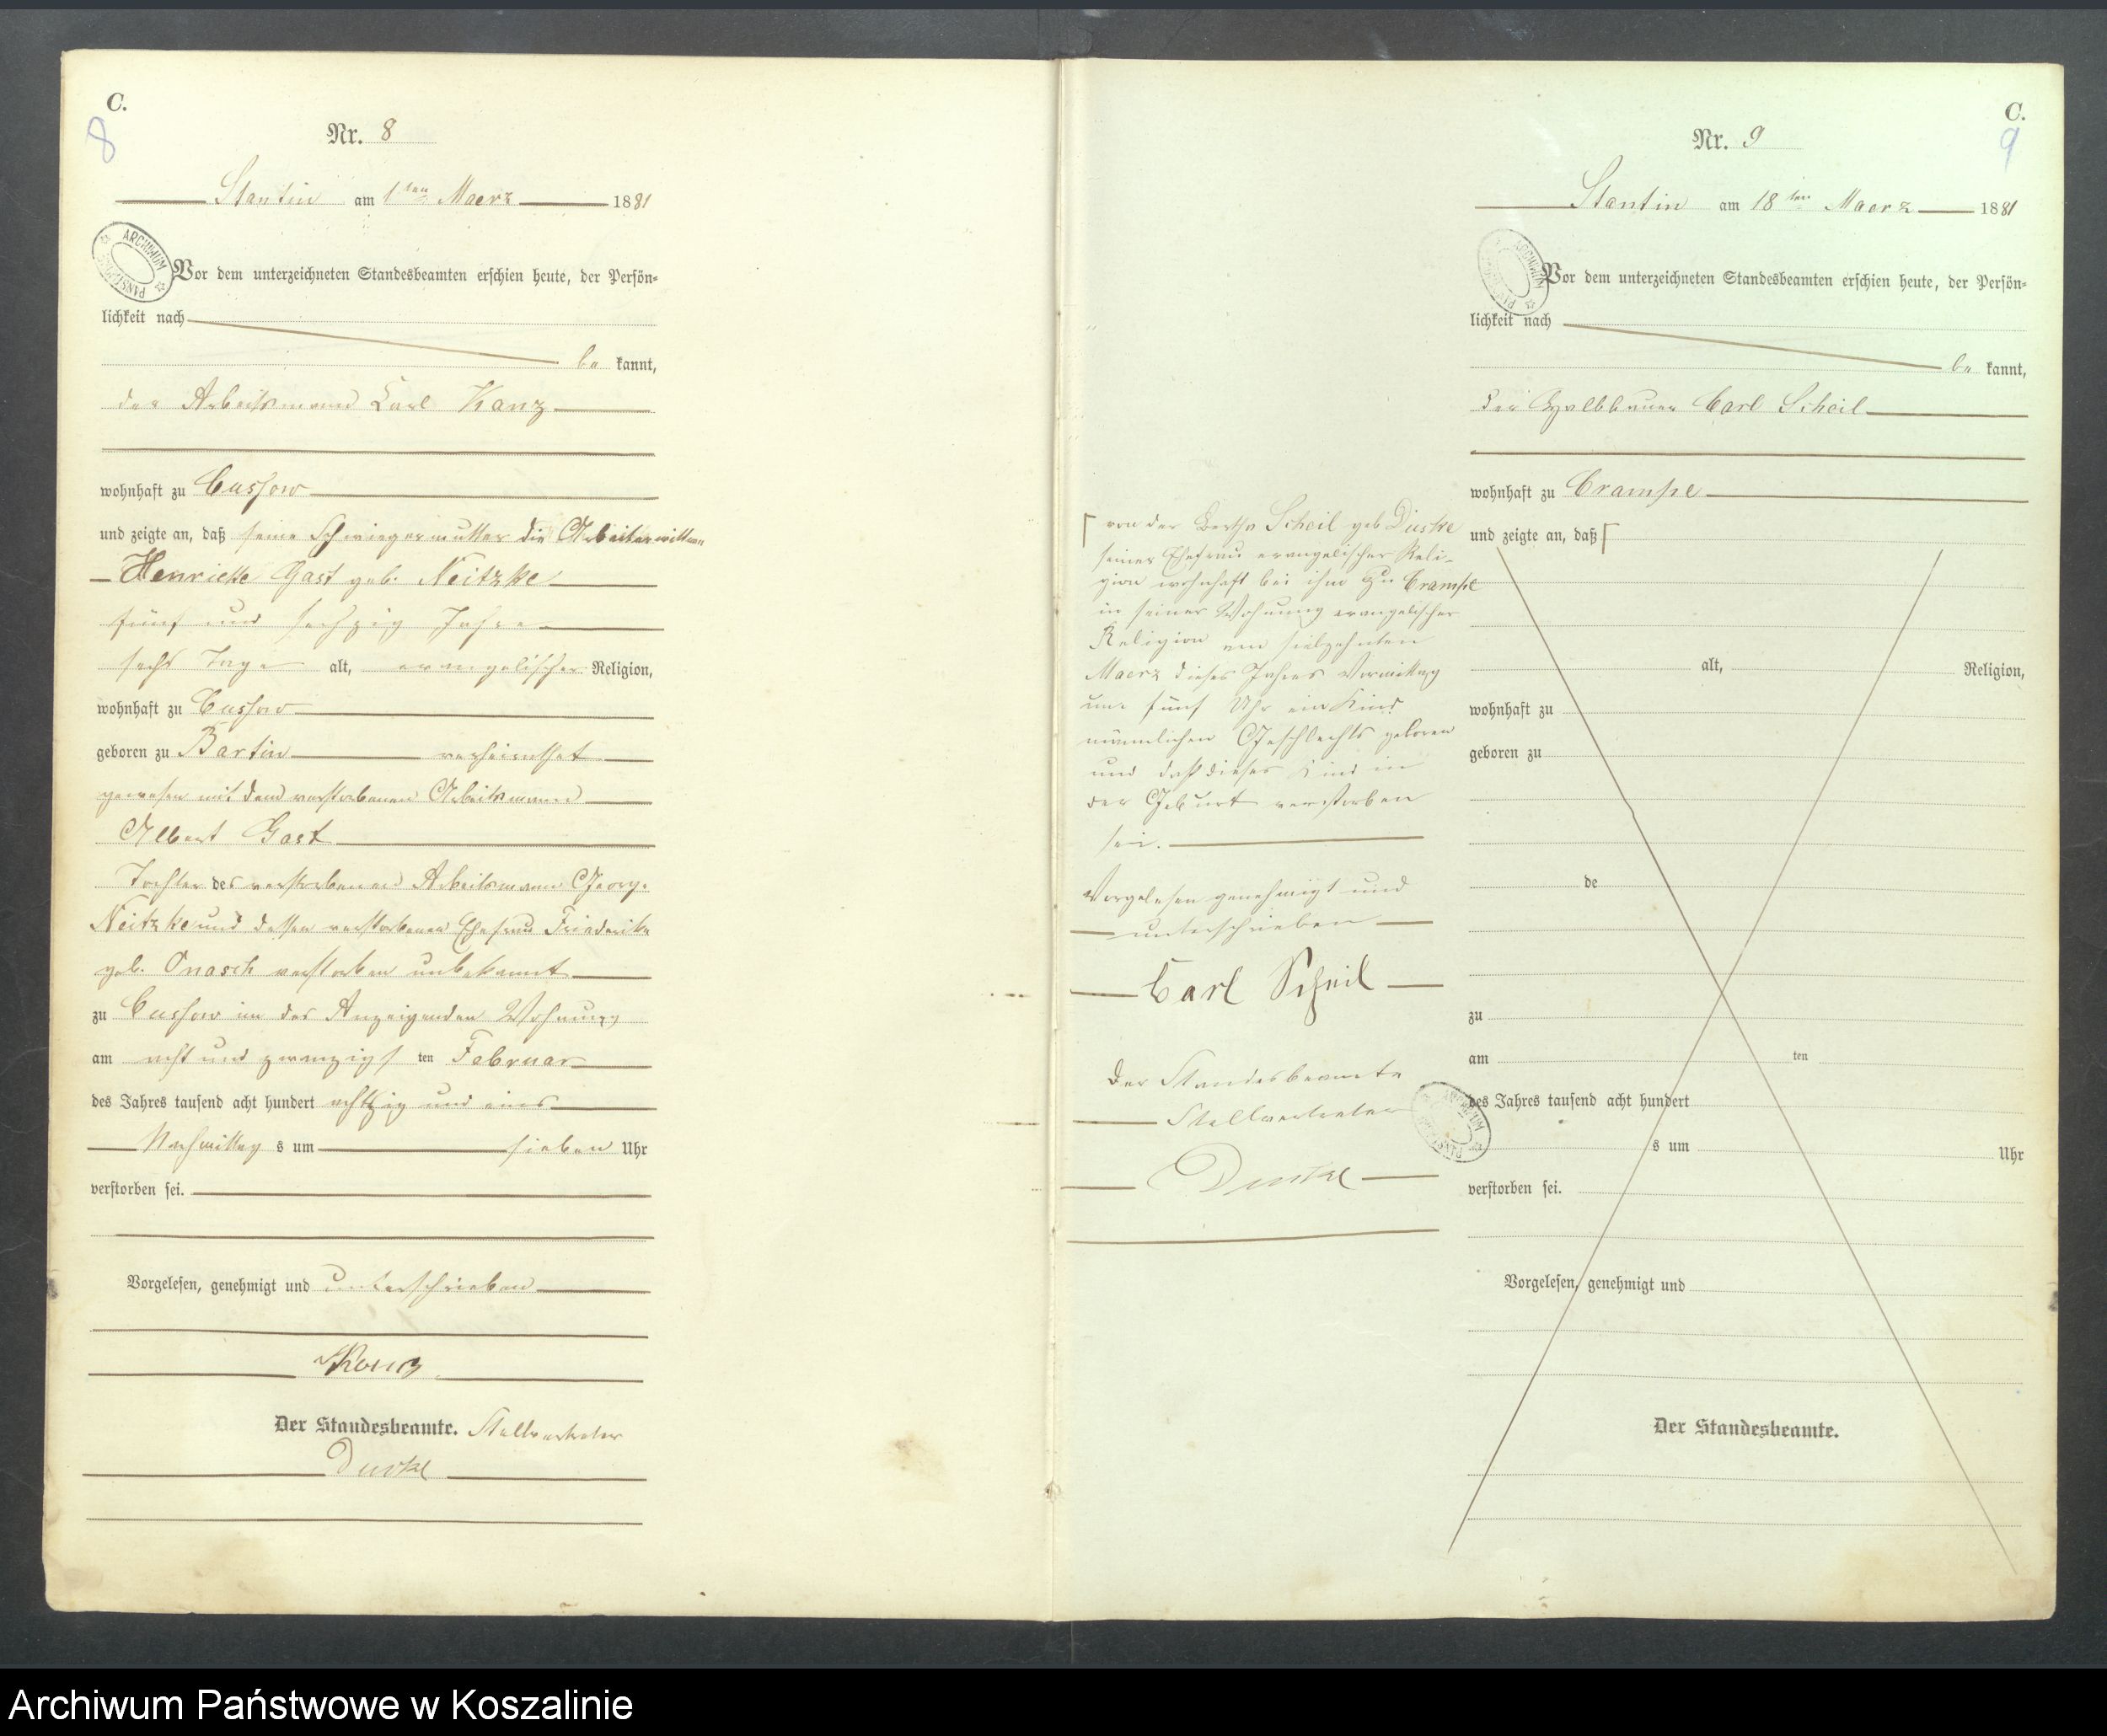 C.
8
Nr. 8
Stantin am 1ten Maerz 1881
Vor dem unterzeichneten Standesbeamten erschien heute, der Persön-
lichkeit nach
be kannt,
der Arbeitsmann Carl Kanz
wohnhaft zu Cussow
und zeigte an, daß seine Schwiegermutter die Arbeiterwittwe
Henriette Gast geb. Neitzke
fünf und sechzig Jahre
sechs Tage alt, evangelischer Religion,
wohnhaft zu Cussow
geboren zu Bartin verheirathet
gewesen mit dem verstorbenen Arbeitsmann
Albert Gast
Tochter des verstorbenen Arbeitsmann George
Neitzke und dessen verstorbenen Ehefrau Friederike
geb. Onasch verstorben unbekannt
zu Cussow in des Anzeigenden Wohnung
am acht und zwanzigs ten Februar
des Jahres tausend acht hundert achtzig und eins
Nachmittag s um sieben Uhr
verstorben sei.
Vorgelesen, genehmigt und unterschrieben
Kanz
Der Standesbeamte. Stellvertreter
ARCHIWUM
C.
9
Nr. 9
Stantin am 18ten Maerz 1881
Vor dem unterzeichneten Standesbeamten erschien heute, der Persön-
lichkeit nach
be kannt,
der Halbbauer Carl Scheil
wohnhaft zu Crampe
und zeigte an, daß
von der Bertha Scheil geb Duske
seiner Ehefrau evangelischer Reli-
gion wohnhaft bei ihm zu Crampe
in seiner Wohnung evangelischer
Religion am siebzehnten
Maerz dieses Jahres Vormittag
um fünf Uhr ein Kind
männlichen Geschlechts geboren
und daß dieses Kind in
der Geburt verstorben
sei.
Vorgelesen genehmigt und
unterschrieben
Carl Scheil
Der Standesbeamte
Stellvertreter
alt, Religion,
wohnhaft zu
geboren zu
de
zu
am ten
des Jahres tausend acht hundert
s um Uhr
verstorben sei.
Vorgelesen, genehmigt und
Der Standesbeamte.
Archiwum Państwowe w Koszalinie